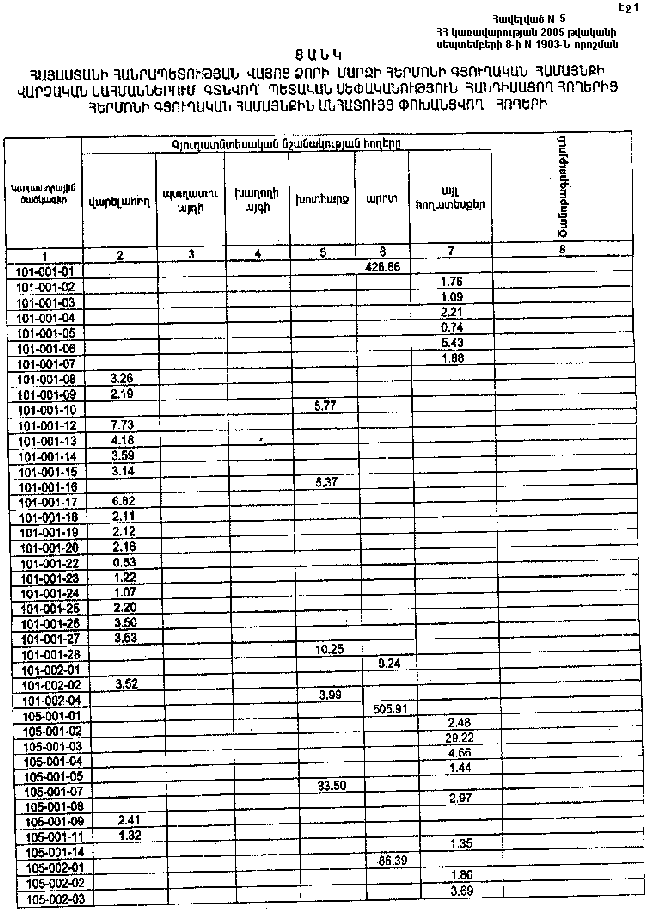 Էջ 1
Հավելված N 5
ՀՀ կառավարության 2005 թվականի
սեպտեմբերի 8-ի N 1903-Ն որոշման
ՑԱՆԿ
ՀԱՅԱՍՏԱՆԻ ՀԱՆՐԱՊԵՏՈՒԹՅԱՆ ՎԱՅՈՑ ՁՈՐԻ ՄԱՐԶԻ ՀԵՐՄՈՆԻ ԳՅՈՒՂԱԿԱՆ ՀԱՄԱՅՆՔԻ
ՎԱՐՉԱԿԱՆ ՍԱՀՄԱՆՆԵՐՈՒՄ ԳՏՆՎՈՂ ՊԵՏԱԿԱՆ ՍԵՓԱԿԱՆՈՒԹՅՈՒՆ ՀԱՆԴԻՍԱՑՈՂ ՀՈՂԵՐԻՑ
ՀԵՐՄՈՆԻ ԳՅՈՒՂԱԿԱՆ ՀԱՄԱՅՆՔԻՆ ԱՆՀԱՏՈՒՅՑ ՓՈԽԱՆՑՎՈՂ ՀՈՂԵՐԻ
Կադաստրային ծածկագիր
Գյուղատնտեսական նշանակության հողերը
վարելահող պտղատու այգի խաղողի այգի խոտհարք արոտ այլ հողատեսքեր
1 2 3 4 5 6 7 8
101-001-01 426.86
101-001-02 1.76
101-001-03 1.09
101-001-04 2.21
101-001-05 0.74
101-001-06 5.43
101-001-07 1.88
101-001-08 3.26
101-001-09 2.19
101-001-10 5.77
101-001-12 7.73
101-001-13 4.18
101-001-14 3.59
101-001-15 3.14
101-001-16 5.37
101-001-17 6.82
101-001-18 2.11
101-001-19 2.12
101-001-20 2.18
101-001-22 0.53
101-001-23 1.22
101-001-24 1.07
101-001-25 2.20
101-001-26 3.50
101-001-27 3.63
101-001-28 10.25
101-002-01 9.24
101-002-02 3.52
101-002-04 3.99
105-001-01 505.91
105-001-02 2.48
105-001-03 29.22
105-001-04 4.66
105-001-05 1.44
105-001-07 33.50
105-001-08 2.97
105-001-09 2.41
105-001-11 1.32
105-001-14 1.35
105-002-01 86.39
105-002-02 1.86
105-002-03 3.69